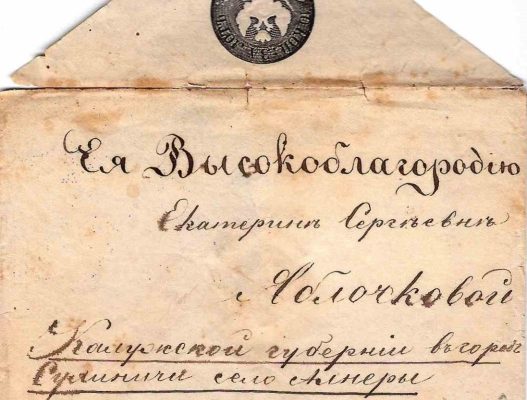 Ея Высокоблагородію
Екатеринѣ Сергѣевнѣ
Яблочковой
Калужской губерніи въ городъ
Сухиничи село Алнеры